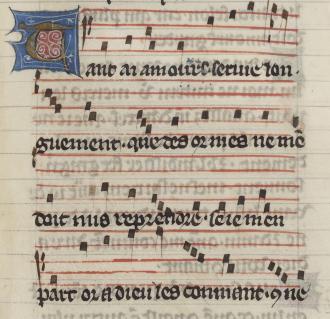 Tant ai amours seruie lon
guement. que des or mes ne mẽ
doit nus reprendre. se ie men
part or a dieu les conmant. q̃ ne